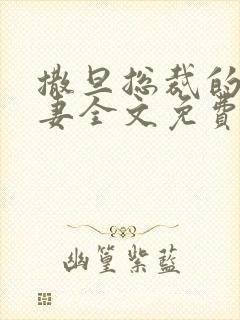 撒旦总裁的
妻全文免費
幽篁紫藍